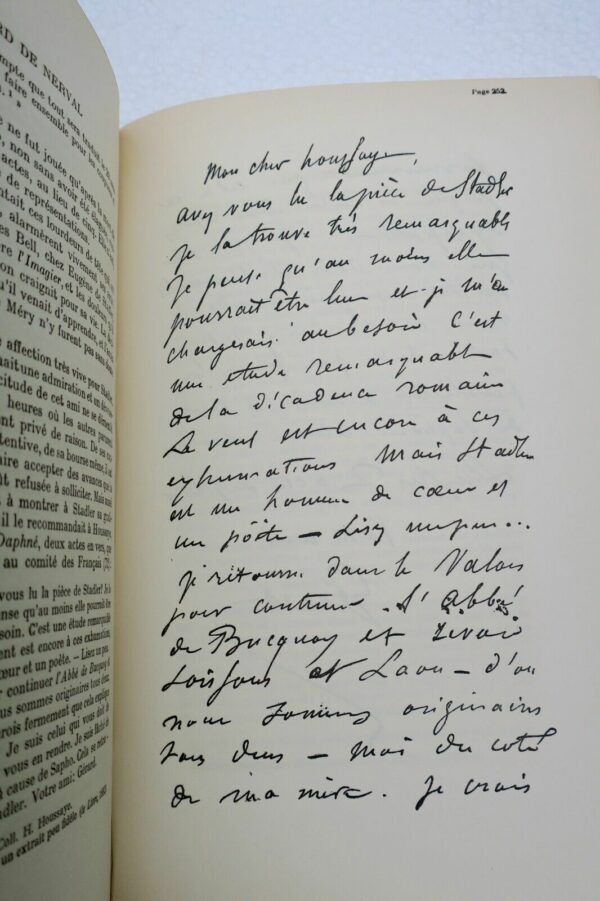 RD DE NERVAL
mpte que tout sera
faire ensemble pour les
ne fut jouée qu'après
non sans avoir été
actes, au lieu de cinq.
de représentations.
ntait ces lourdeurs de tête
alarmèrent vivement
es Bell, chez Eugène de
re l'Imagier, et les
on craignit pour sa vie. La
u'il venait d'apprendre, et
Méry n'y furent pas sans
affection très vive pour Stadler
nait une admiration et un
citude de cet ami ne se
heures où les autres
ent privé de raison. De ses
tentive, de sa bourse même, il
aire accepter des avances que
ût refusée à solliciter. Mais
à montrer à Stadler son
il le recommandait à Houssaye,
Daphné, deux actes en vers, que
au comité des Français (72)
vous lu la pièce de Stadler? Je la
ense qu'au moins elle pourrait être
soin. C'est une étude remarquable
ent est encore à ces exhumations,
œur et un poète. — Lisez un peu
continuer l'Abbé de Bucquoy et
us sommes originaires tous deux,
rois fermement que cela explique
Je suis celui qui vous
vous en rendre. Je suis
à cause de Sapho. Cela se
adler. Votre ami: Gérard.
Coll. H. Houssaye.
un extrait peu fidèle (le Livre, 1883
Page 252.
Mon cher houssaye,
avez vous lu la pièce de Stadler
je la trouve très remarquable
Je pense qu'au moins elle
pourrait être lue et je m'en
chargerais au besoin C'est
une étude remarquable
de la décadence romaine
Le vent est encore à ces
exhumations Mais Stadler
est un homme de cœur et
un pöète — Lisez un peu...
je retourne dans le Valois
pour continuer L'Abbé
de Bucquoy et revoir
Soissons et Laon — d'où
nous sommes originaires
tous deux — moi du coté
de ma mère. Je crois